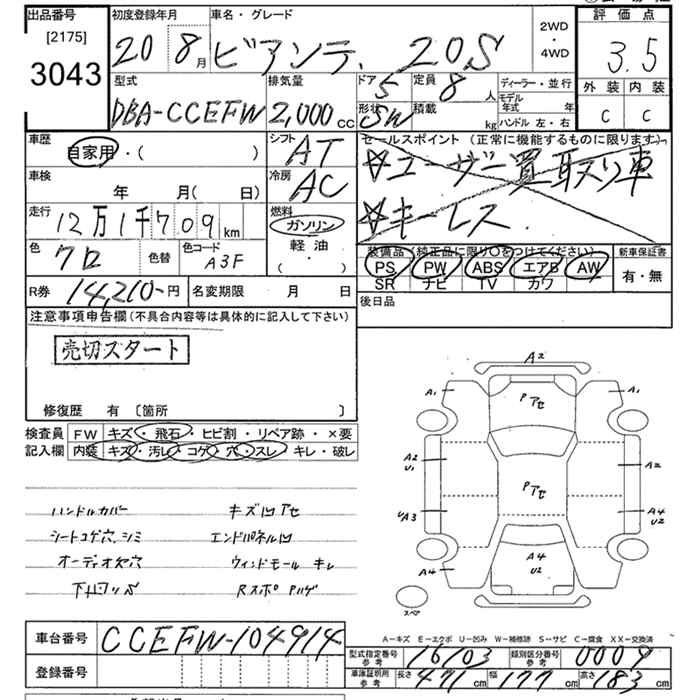 出品番号 初度登録年月 車名・グレード 2WD・4WD 評価点
[2175]
3043 20 8月 ビアンテ 20S 3.5
型式 排気量 ドア 5 定員 8人 ディーラー・並行 外装 内装
DBA-CCEFW 2,000cc 形状 SW 積載 kg モデル年式 年 ハンドル 左・右 C C
車歴 自家用・( ) シフト AT セールスポイント(正常に機能するものに限ります)
車検 年 月( 日) 冷房 AC ☆ユーザー買取り車
走行 12万1千709km 燃料 ガソリン・軽油・( ) ☆キーレス
色 クロ 色替 色コード A3F 装備品(純正品に限り○をつけてください) 新車保証書
PS PW ABS エアB AW 有・無
SR ナビ TV カワ
R券 14,210円 名変期限 月 日 後日品
注意事項申告欄(不具合内容等は具体的に記入して下さい)
売切スタート
修復歴 有 〔箇所 〕
検査員 FW キズ・飛石・ヒビ割・リペア跡・×要
記入欄 内装 キズ・汚レ・コゲ・穴・スレ・キレ・破レ
ハンドルカバー キズ凹アセ
シートコゲ穴、シミ エンドパネル凹
オーディオ欠穴 ウィンドモール キレ
下廻りS RスポPハゲ
A2
A1 PアセA1
A2 U1 A2
Pアセ
UA3 A4 U2
A4 A4 U2
スペア
A-キズ E-エクボ U-凹み W-補修跡 S-サビ C-腐食 XX-交換済
車台番号 CCEFW-104914 型式指定番号 参考 16103 類別区分番号 参考 0009
登録番号 車庫証明用 参考 長さ 471cm 幅 177cm 高さ 183cm